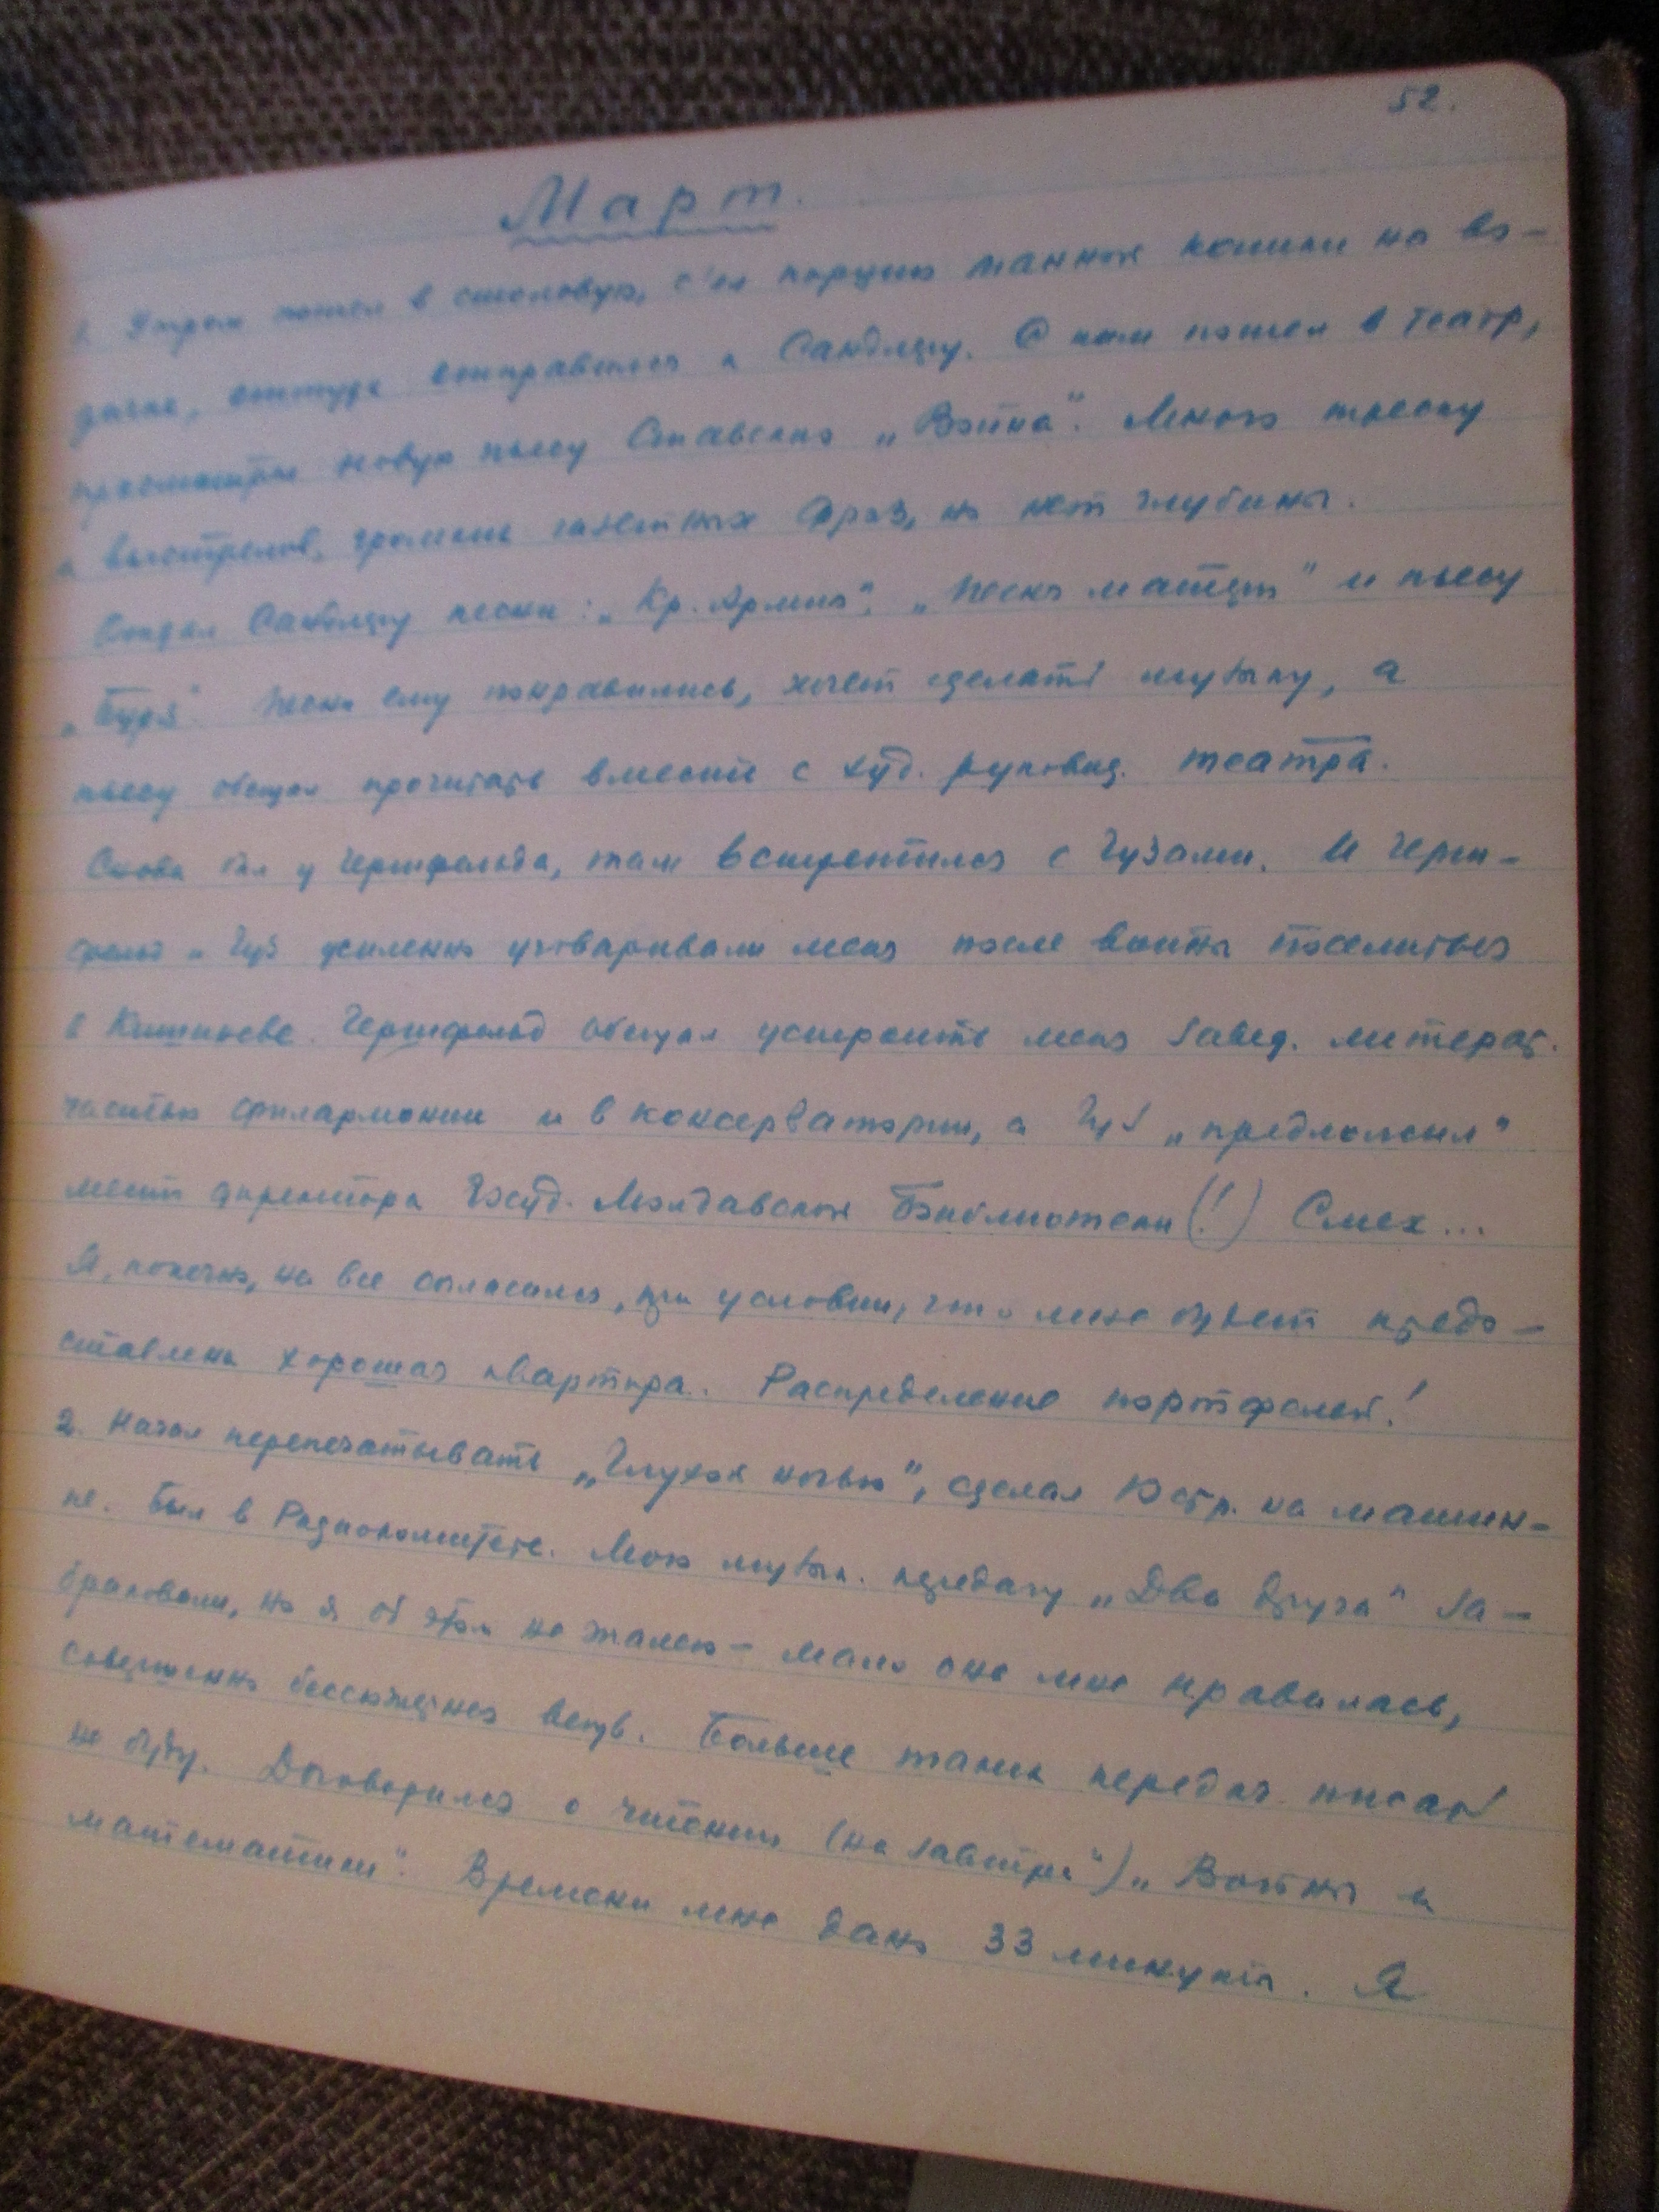 52.
Март.
1. Утром пошел в столовую, с'ел порцию манной кашки на во-
дичке, оттуда отправился к Сандлеру. С ним пошел в театр,
просмотрел новую пьесу Ставского „Война“. Много треску
и выстрелов, громких газетных фраз, но нет глубины.
Отдал Сандлеру песни: „Кр. Армия“, „Песня матери“ и пьесу
„Буря“. Песни ему понравились, хочет сделать музыку, а
пьесу обещал прочитать вместе с худ. руковод. театра.
Снова был у Гершфельда, там встретился с Гузами. И Герш-
фельд и Гуз усиленно уговаривали меня после войны поселиться
в Кишиневе. Гершфельд обещал устроить меня завед. литерат.
частью филармонии и в консерватории, а Гуз „предложил“
место директора Госуд. Молдавской Библиотеки (!) Смех...
Я, конечно, на все согласился, при условии, что мне будет предо-
ставлена хорошая квартира. Распределение портфелей!
2. Начал перепечатывать „Глухой ночью“, сделал стр. на машин-
ке. Был в Радиокомитете. Мою музык. передачу „Два друга“ за-
браковали, но я об этом не жалею – мало она мне нравилась,
совершенно бессюжетная вещь. Больше таких передач писать
не буду. Договорился о чтении (на завтра) „Войны и
математики“. Времени мне дано 33 минуты. Я